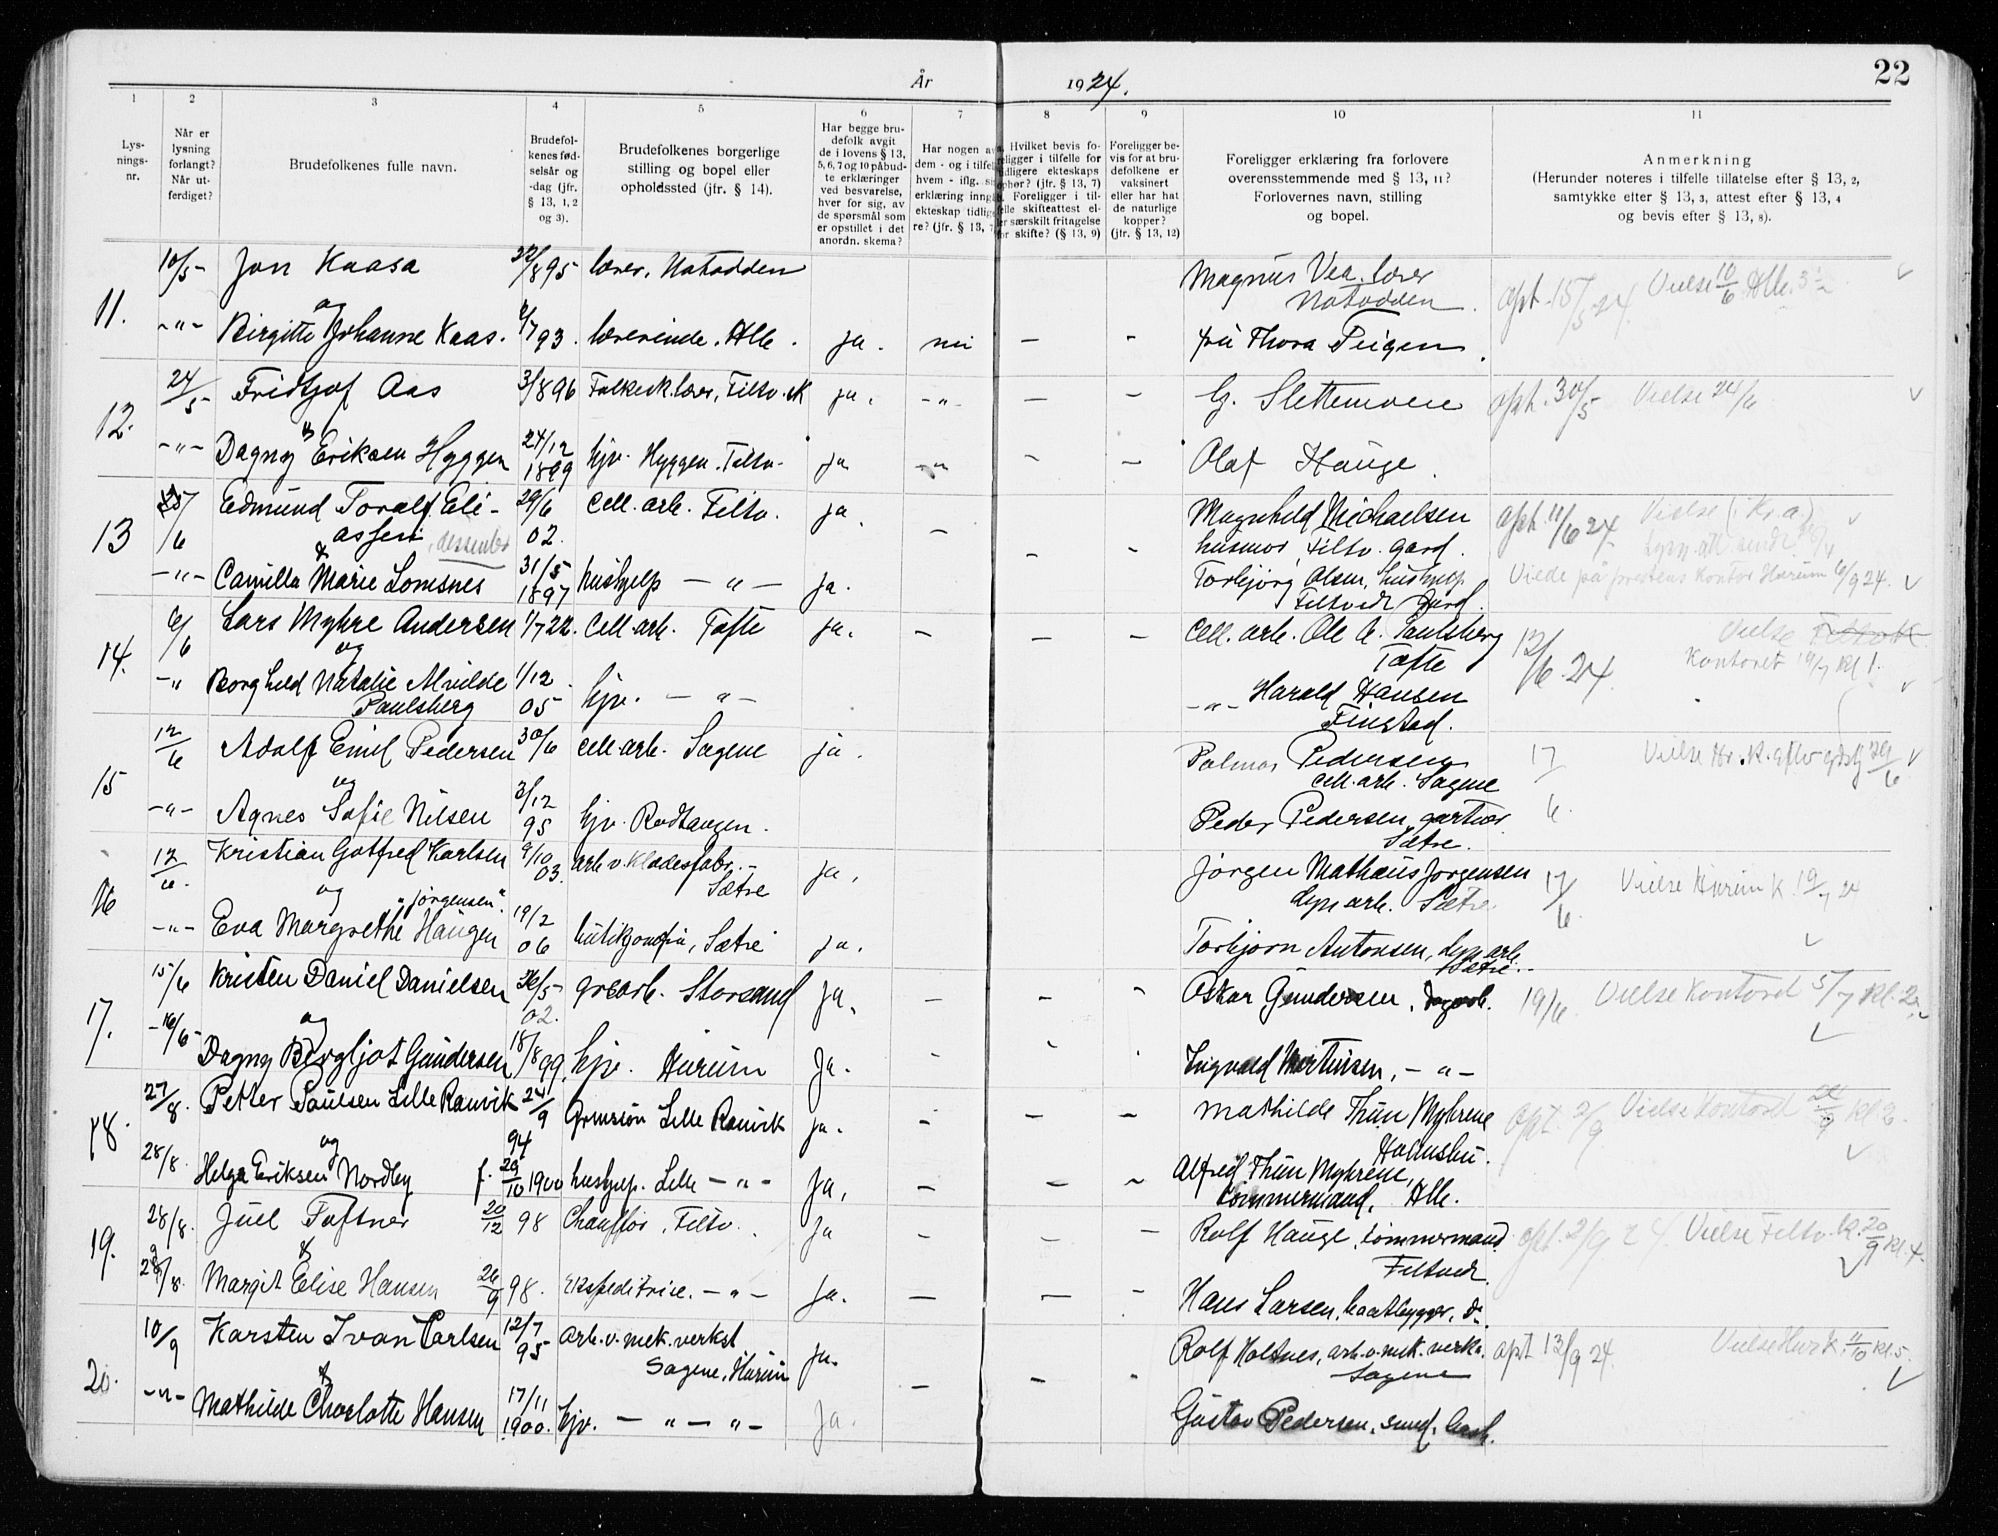 22
År 1924.
1 2 3 4 5 6 7 8 9 10 11
Lysningsnr.
Når er lysning forlangt? Når utferdiget?
Brudefolkenes fulle navn.
Brudefolkenes fødselsår og -dag (jfr. § 13, 1, 2 og 3).
Brudefolkenes borgerlige stilling og bopel eller opholdssted (jfr. § 14).
Har begge brudefolk avgit de i lovens § 13, 5, 6, 7 og 10 påbudte erklæringer ved besvarelse, hver for sig, av de spørsmål som er opstillet i det anordn. skema?
Har nogen a
dem - og i tilfel
hvem - iflg. s
erklæring inng
ekteskap tidlig
re? (jfr. § 13, 7
Hvilket bevis fo-
ligger i tilfelle for
dligere ekteskaps
phør? (jfr. § 13, 7)
Foreligger i til-
elle skifteattest el-
r særskilt fritagelse
or skifte? (§ 13, 9)
Foreligger bevis for at brudefolkene er vaksinert eller har hat de naturlige kopper? (jfr. § 13, 12)
Foreligger erklæring fra forlovere overensstemmende med § 13, 11? Forlovernes navn, stilling og bopel.
Anmerkning
(Herunder noteres i tilfelle tillatelse efter § 13, 2,
samtykke efter § 13, 3, attest efter § 13, 4
og bevis efter § 13, 8).
11. 10/5- Jon Kaasa 22/8 95 lærer, Notodden Magnus Vea. lærer Notodden. opt. 15/5 24. Vielse 10/6 Hlle. 3 1/2
og
-"- Birgitte Johanne Kaas. 93. lærerinde. Hlle. ja. nei - - fru Thora Teigen.
12. 24/5- Fridtjof Aas 3/8 96 Folkesk.lærer, Filtv. ja. -"- - - G. Slettemoen opt. 30/5 Vielse 24/6
-"- Dagny Eriksen Hyggen 24/12 1899 hjv. Hyggen. Filtv. ja - - Olaf Hauge.
13 /6 Edmund Toralf Eli-
assen 29/6 02. cell. arb. Filtv. ja. - Magnhild Michaelsen husmor, Filtv. gård. opt. 11/6 24 Vielse (i Kr.a)
&
-"- Camilla Marie Lomsnes 31/5 1897 hushjelp -"- ja. - - Torbjørg Olsen, hushjelp Filtvedt gård. Viede på prestens kontor Hurum 6/9 24.
14. 6/6 Lars Myhre Andersen 1/7 22. Cell. arb. Tofte ja. - - - Cell. arb. Ole A. Paulsberg Tofte 12/6. 24. Vielse
Kontoret 19/7 kl 1.
og
-" Borghild Natalie Alvilde Paulsberg 1/12 05 hjv. -"- -"- Harald Hansen Finstad.
15 12/6 Adolf Emil Pedersen 30/6 cell. arb. Sagene ja. Palmar Pedersen cell. arb. Sagene 17/6.
og
-"- Agnes Sofie Nilsen 3/12 95 hjv. Rødtangen. Peder Pedersen, gartner Sætre.
16 12/6. Kristian Gotfred Karlsen 9/10 03. arb. v. Klædesfabr.- Sætre ja. Jørgen Mathæus Jørgensen dyn arb. Sætre. 17/6 Vielse Hurum K. 19/7 24
og "Jørgensen".
-"- Eva Margrethe Haugen 19/2 06 butikjomfru, Sætre ja. Torbjørn Antonsen, dyn arb. Sætre.-
17. 15/6 Kristen Daniel Danielsen 26/5- 02. grbarb. Storsand Ja. - - - Oskar Gundersen, 19/6 Vielse Kontoret 5/7 kl. 2
og
-16/6- Dagny Bergljot Gundersen 18/8 99. hjv. Hurum Ja. - - - Ingvald Martinsen, -"-
18. 27/8. Petter Paulsen Lille Ramvik 24/9 94 Grmsøn Lille Ramvik Ja. - - - Mathilde Thun Myhrene Holmsbu. opt. 2/9 Vielse Kontoret
og
28/8. Helga Eriksen Nordby f. 29/10 1900 hushjelp. Lille -"- Ja. - - - Alfred Thun Myhrene, tømmermand, Hlle.
19. 28/8. Juel Toftner 20/12 98 Chauffør, Filtv. Ja - - - Rolf Hauge, tømmermand Filtvedt. opt. 2/9 24. Vielse Filtv. k. 20/9 kl. 4.
&
28/8. Margit Elise Hansen 26/9 98. Ekspeditrice. -"- Ja. - - - Hans Larsen, baatbygger, do.
20. 10/9 Karsten Ivan Carlsen 12/7 95 arb. v. mek. verkst Sagene, Hurum Ja. Rolf Holtnes, arb. v. mek. verks. Sagene opt 13/9 24. Vielse Hur k. 11/10 kl 5.
&
-"- Mathilde Charlotte Hansen 17/11 1900. hjv. -"-"- Ja. - - - Gustav Pedersen,